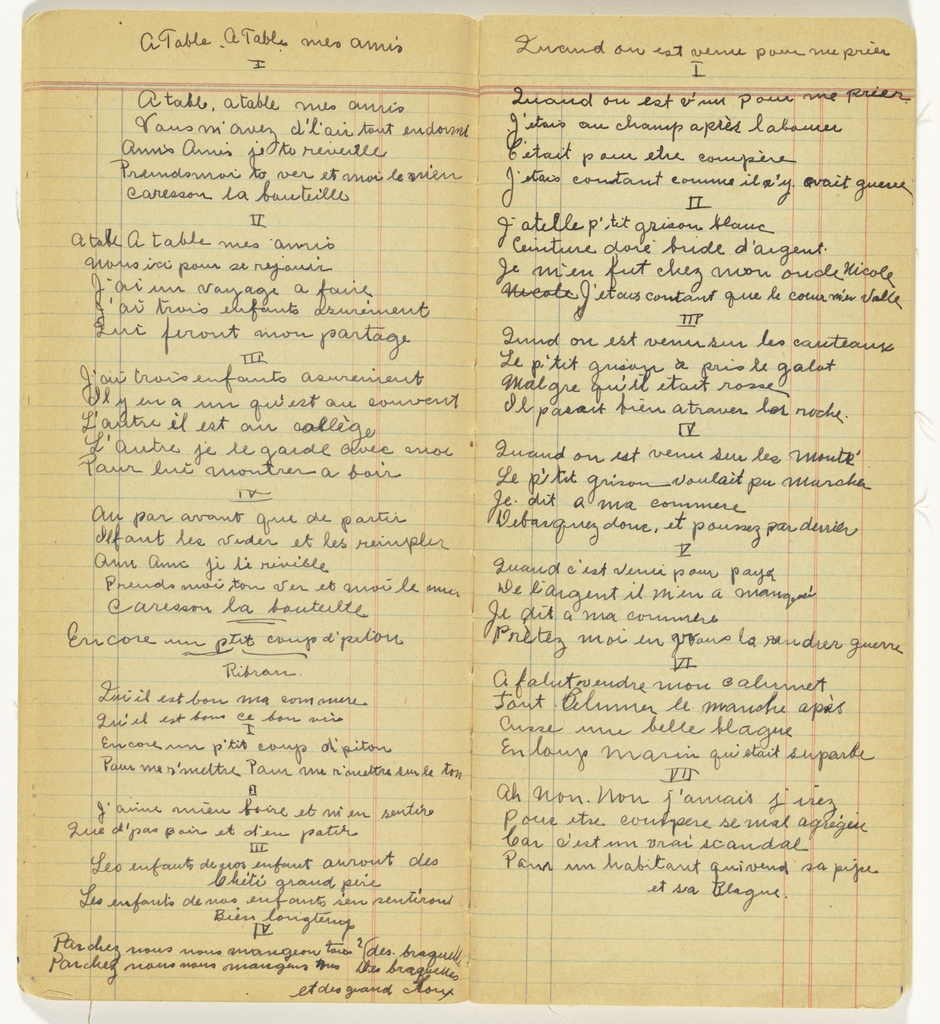 A Table. A Table mes amis
I
A table, a table mes amis
Vous m'avez d'l'air tout endormi
Amis Amis je to reveille
Prendsmoi to ver et moi le mien
Caresson la bouteille
II
A tabl A table mes amis
nous ici pour se rejouir
J'ai un voyage a faire
J'ai trois enfants asurément
Qui feront mon partage
III
J'ai trois enfants asurement
Il y en a un qu'est au couvent
L'autre il est au collège
L'autre je le garde avec moi
Pour lui montrer a boir
IV
Au par avant que de partir
Ilfaut les vider et les reimplir
Ami Ami je te
Prends moi ton ver et moi le mien
Caresson la bouteille
Encore un ptit coup d'piton
Ribran
Qu'il est bon ma commere
Qu'il est bons ce bon vin
I
Encore un p'tit coup d'piton
Pour me r'mettre Pour me r'mettre sur le ton
II
J'aime mieu boire et m'en sentire
Que d'pas boir et d'en patir
III
Les enfants de nos enfant auront des
Chéti grand père
Les enfants de nos enfants s'en sentiront
Bien longtemp
IV
Par chez nous nous mangeon des braquell
Par chez nous nous mangons des braquelles
et des grand
Quand on est venu pour me prier
I
Quand on est v'nu pour me prier
J'etais au champ après labourer
C'était pour etre compère
J'etais contant comme il n'y avait guerre
II
J'atelle p'tit grison blanc
Ceinture doré bride d'argent.
Je m'en fut chez mon oncle Nicole
Nicole J'etais contant que le coeur m'en
III
Qund on est venu sur les cauteaux
Le p'tit grison a pris le galot
Malgre qu'il était rosse
Il pasait bien atraver les roche.
IV
Quand on est venu sur les monté
Le p'tit grison voulait pu marcher
Je dit a ma commere
Debarquez donc, et poussez par derrier
V
Quand c'est venu pour payé
De l'argent il m'en a manqué
Je dit a ma commere
Prètez moi en vous la guerre
VI
A falut vendre mon calumet
Tout le manche après
Ausse une belle blague
En loup marin qu'était suparbe
VII
Ah Non. Non j'amais j'irez
Pour etre compere se mal agréger
Car c'est un vrai scandal
Pour un habitant qui vend sa pipe
et sa Blague.